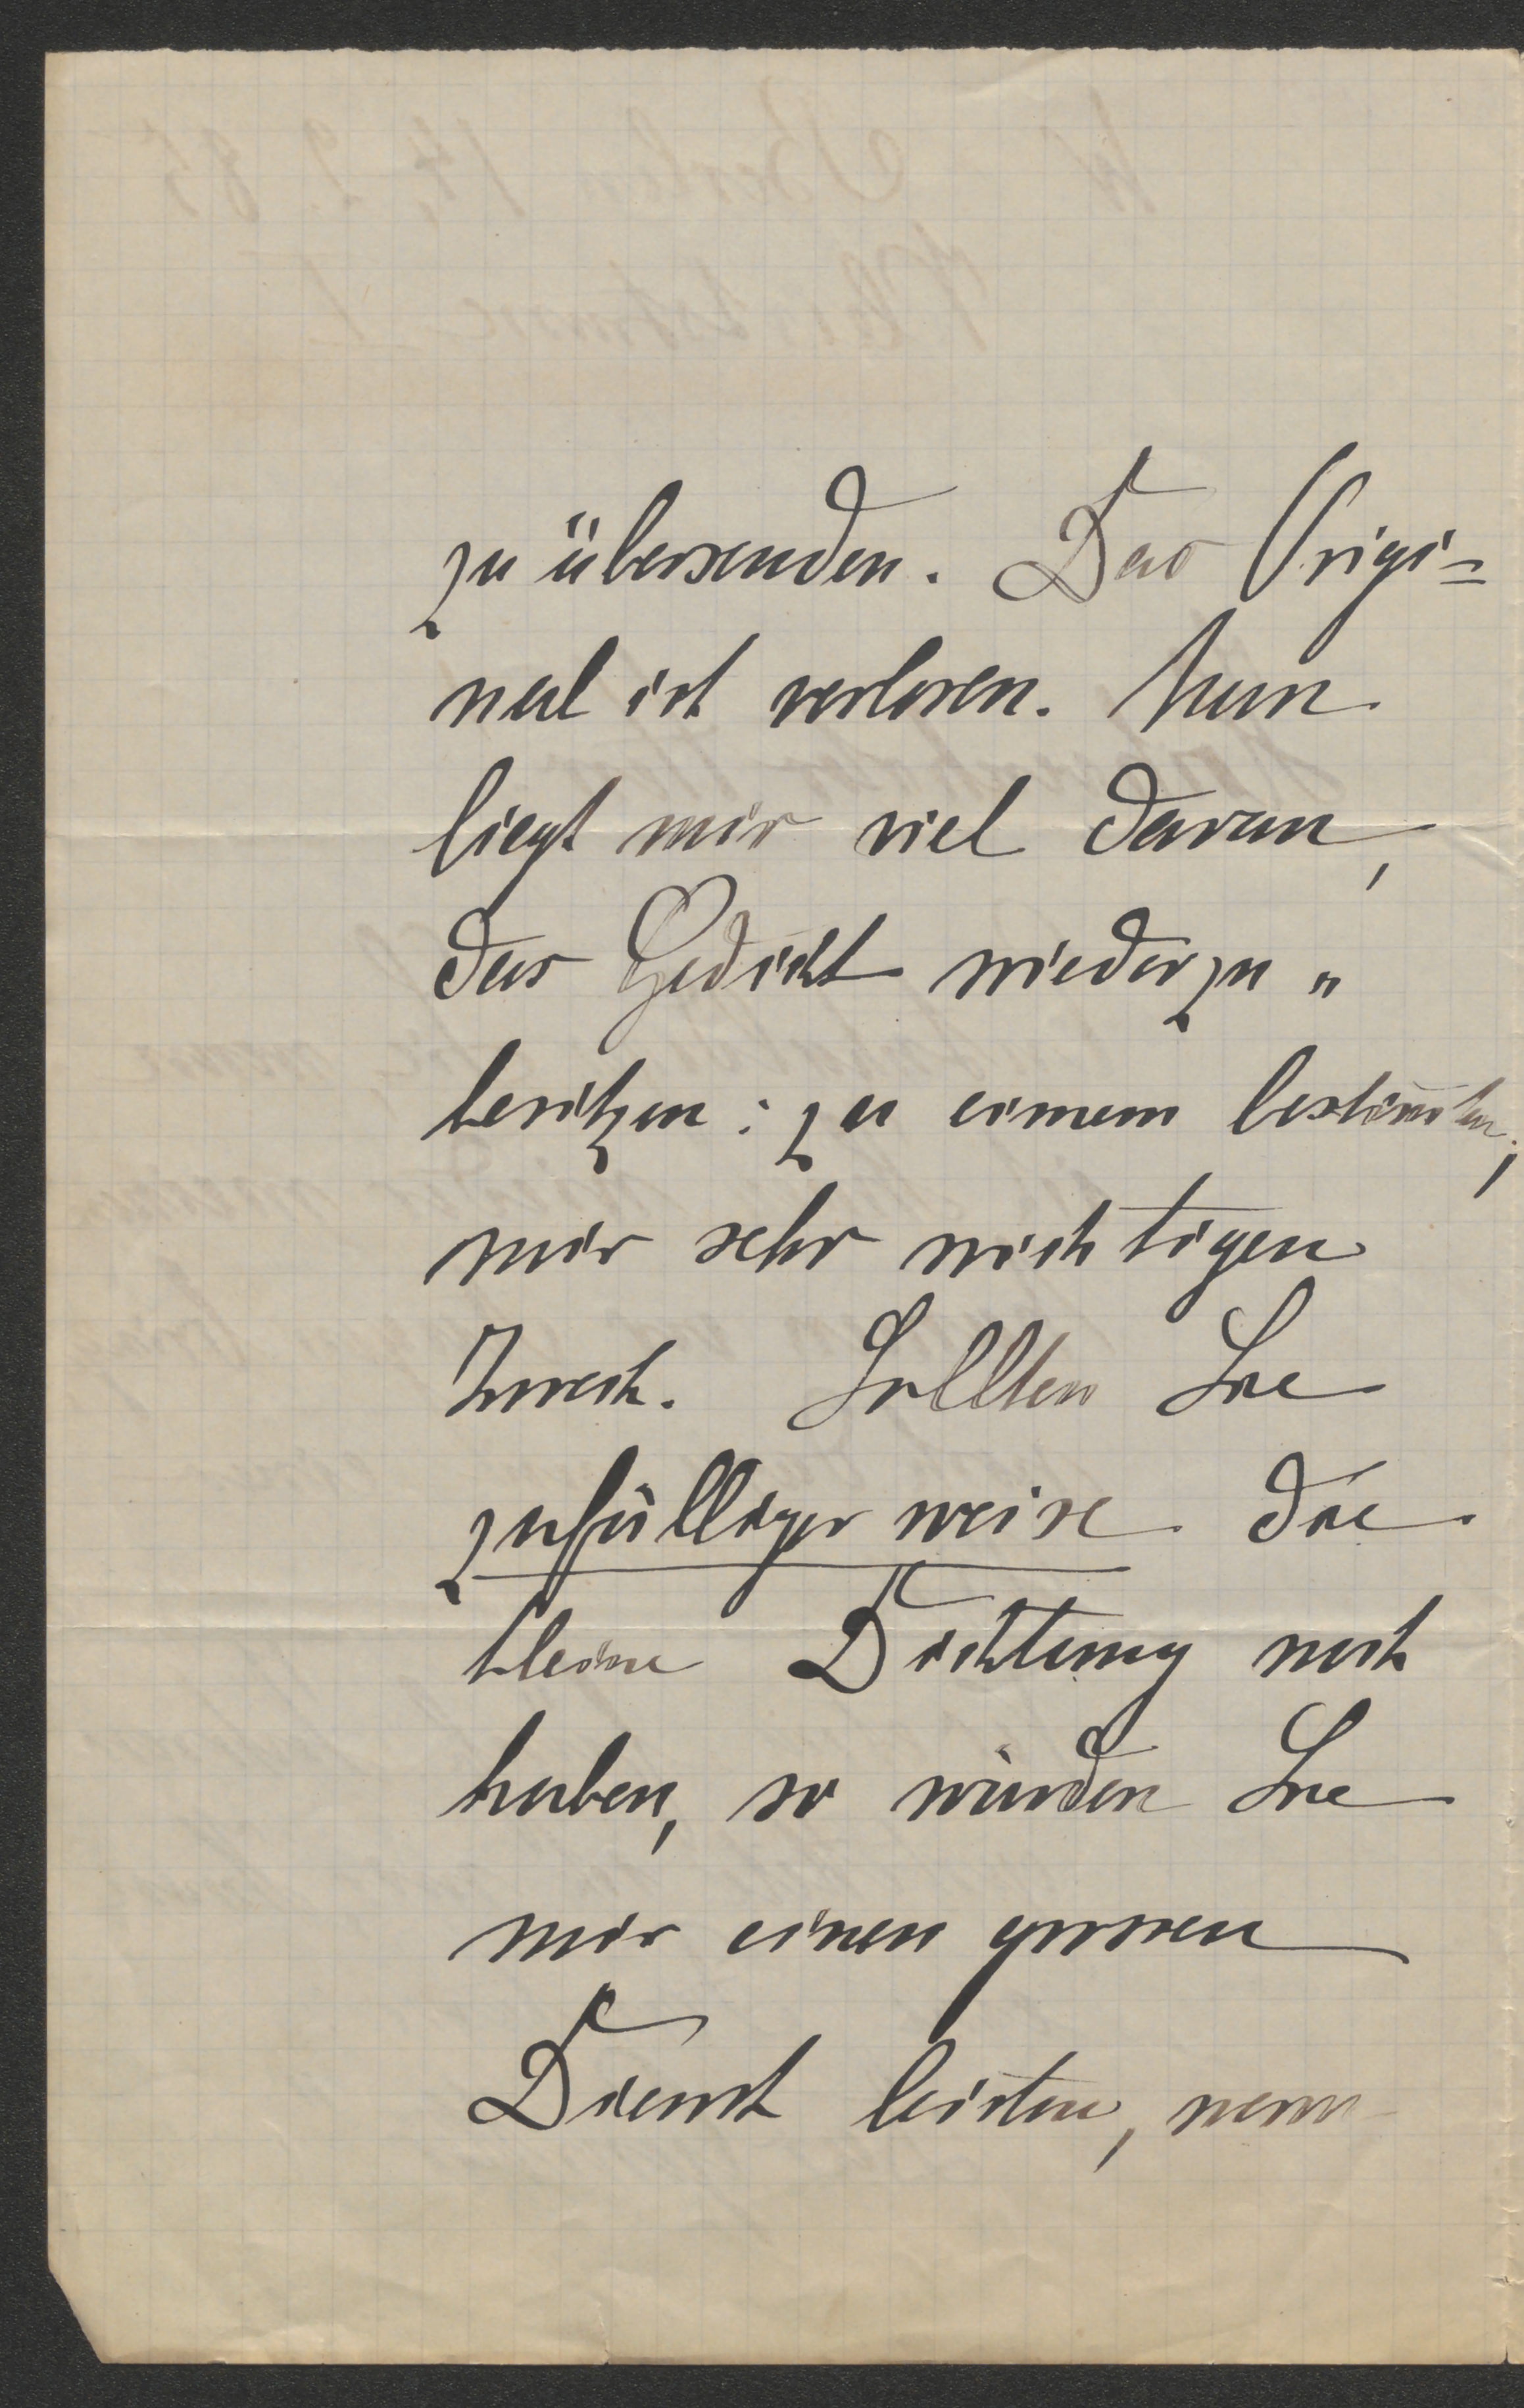 zu übersenden. Das Origi=
nal ist verloren. Nun
liegt mir viel daran,
das Gedicht wiederzu„
besitzen: zu einem bestim̅ten,
mir sehr wichtigen
Zweck. Sollten Sie
zufälliger weise die
kleine Dichtung noch
haben, so würden Sie
mir einen grossen
Dienst leisten, wenn